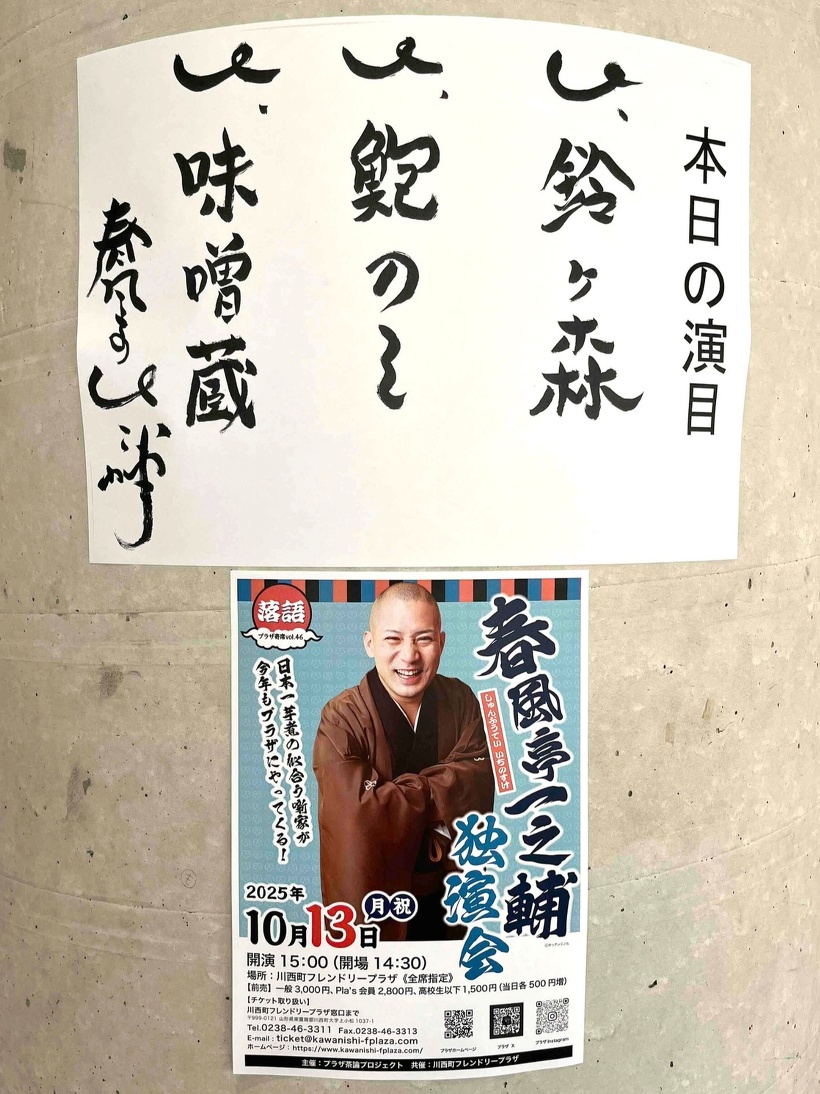 本日の演目
一、鈴ヶ森
一、鮑のし
一、味噌蔵
春風亭一之輔
落語
プラザ寄席vol.46
春風亭一之輔
しゅんぷうてい いちのすけ
独演会
日本一芋煮の似合う噺家が
今年もプラザにやってくる!
2025年
10月13日
月祝
開演 15:00(開場 14:30)
場所:川西町フレンドリープラザ《全席指定》
【前売】一般 3,000円、Pla's 会員 2,800円、高校生以下 1,500円(当日各 500 円増)
【チケット取り扱い】
川西町フレンドリープラザ窓口まで
〒999-0121 山形県東置賜郡川西町大字上小松 1037-1
Tel.0238-46-3311 Fax.0238-46-3313
E-mail : ticket@kawanishi-fplaza.com
ホームページ : https://www.kawanishi-fplaza.com/
プラザホームページ
プラザ X
プラザ Instagram
主催:プラザ茶論プロジェクト 共催:川西町フレンドリープラザ